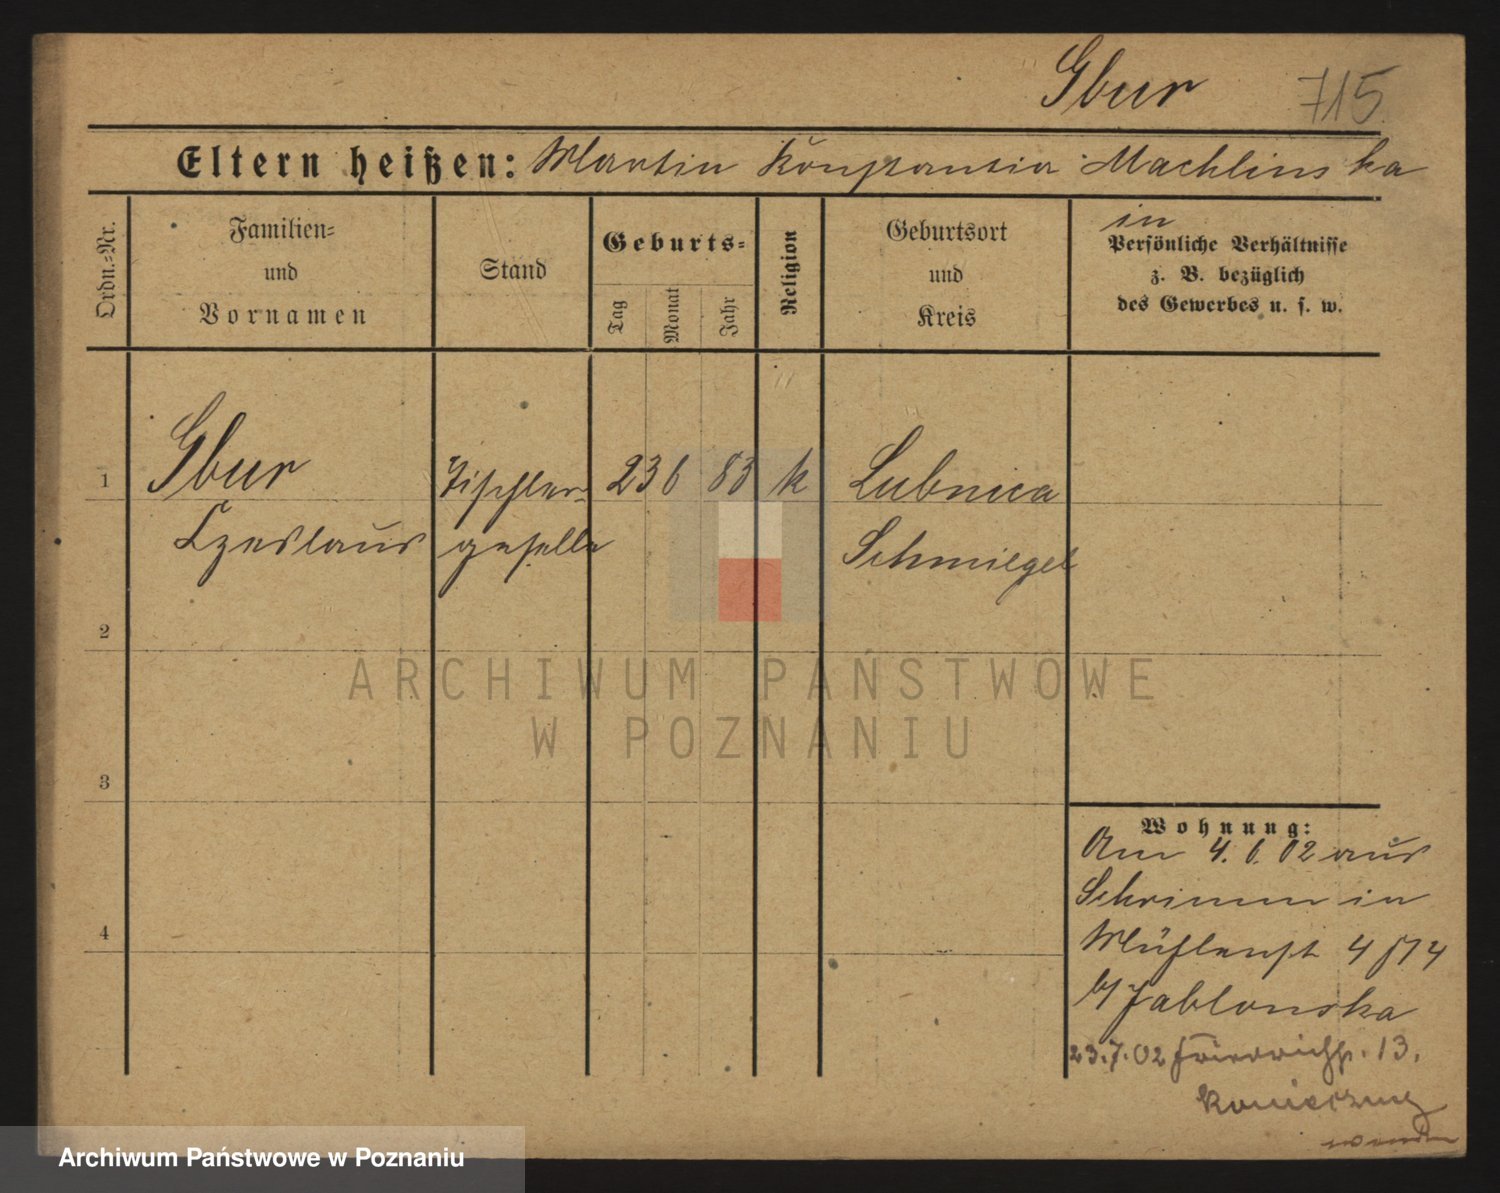 Gbur 715.
Eltern heißen: Martin Konstantia Machlinska
in
Ordn.=Nr.
Familien=
und
Vornamen
Stand
Geburts=
Tag
Monat
Jahr
Religion
Geburtsort
und
Kreis
Persönliche Verhältnisse
z. B. bezüglich
des Gewerbes u. s. w.
1 Gbur Tischler- 23 6 83 k Lubnica
Czeslaus geselle Schmiegel
2
3
4
Wohnung:
Am 4. 6. 02 aus
Schrimm in
Mühlenst 4
b/ Jablonska
23.7.02 Friedrichstr. 13.
Konieczny
wenden
ARCHIWUM PAŃSTWOWE
W POZNANIU
Archiwum Państwowe w Poznaniu